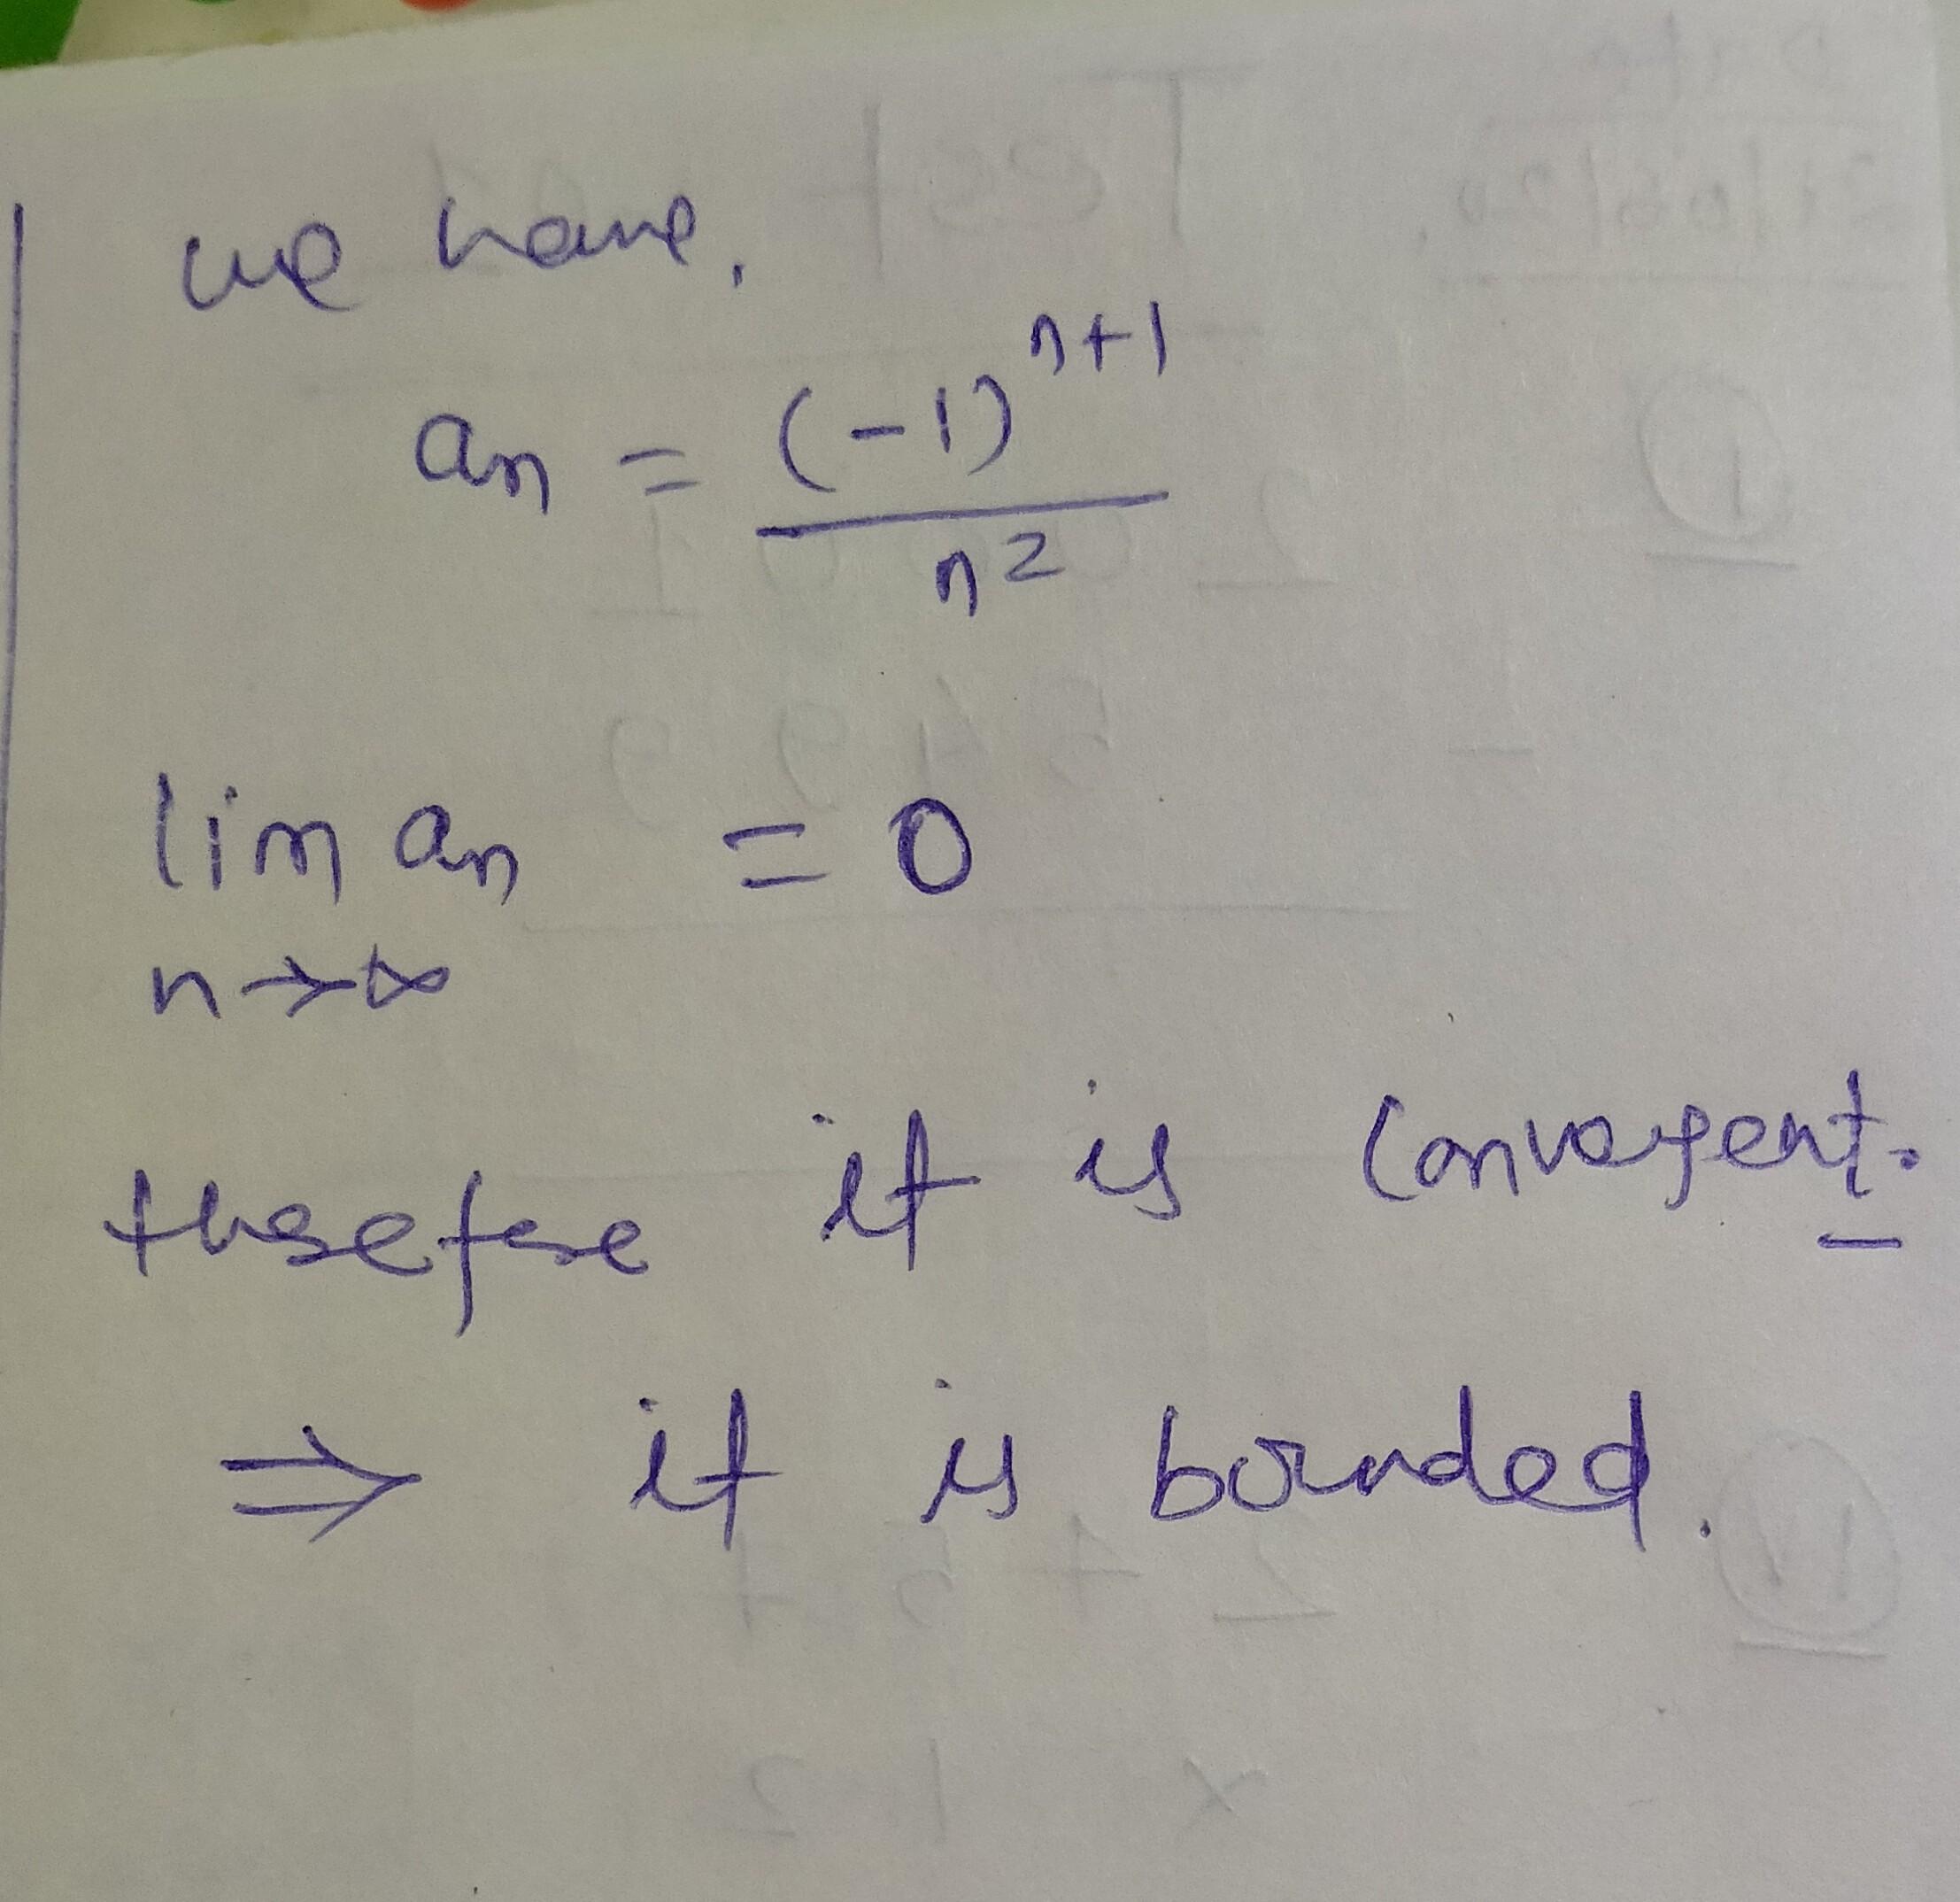 we have,
an = (-1)^n+1 / n^2
lim an = 0
n→∞
therefore it is convergent.
⇒ it is bounded.